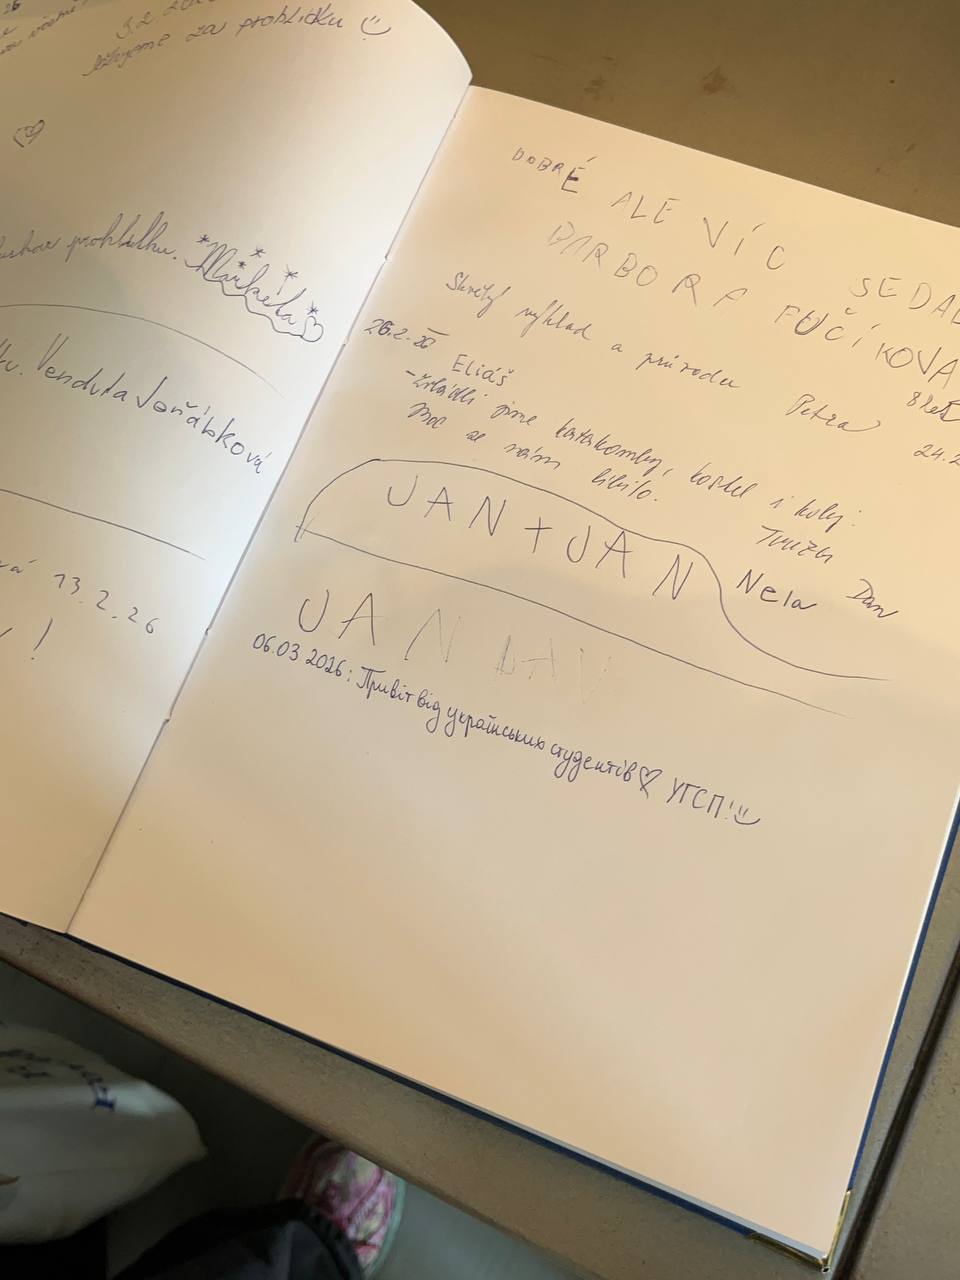 3.2.
děkujeme za prohlídku
prohlídku. Markéta
Vendula Voňábková
13.2.26
!
DOBRÉ ALE VÍC SEDAL
BARBORA FUČÍKOVA
8 let
Skvělý výhled a přírodu Petra 24.2
26.2.
Eliáš
- zvládli jsme katakomby, kostel i koly.
Moc se nám líbilo.
Dan
Nela
JAN + JAN
JAN
06.03.2026: Привіт від українських студентів УГСП!